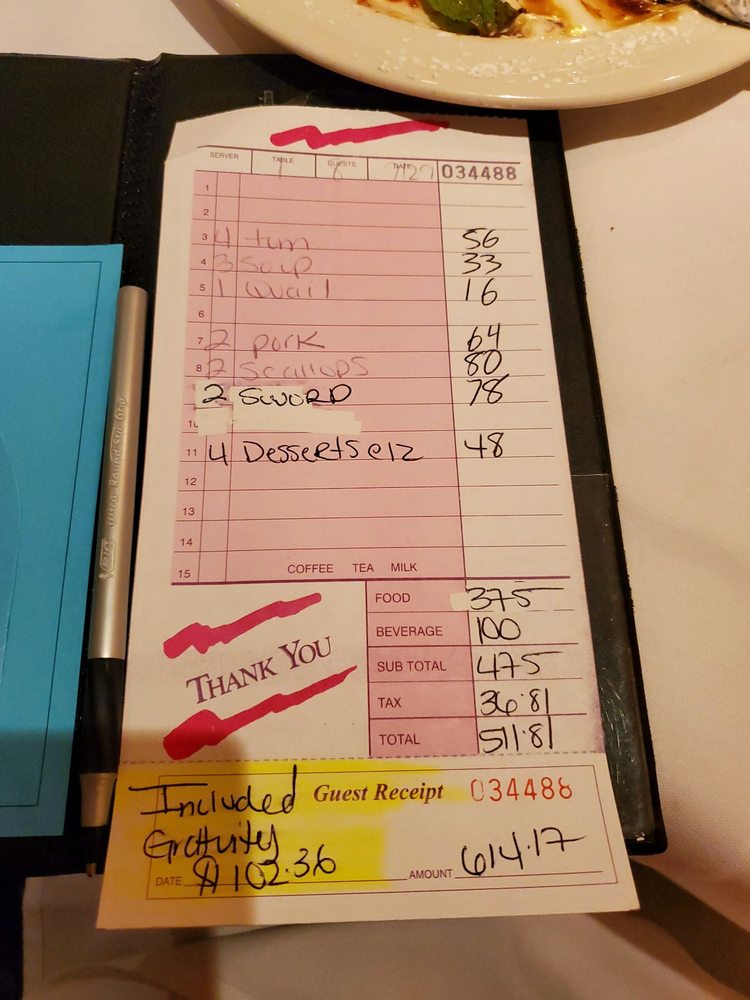 SERVER TABLE GUESTS DATE 034488
1 7/27
1
2
3 4 tum 56
4 3 Soup 33
5 1 Quail 16
6
7 2 pork 64
8 2 Scallops 80
2 SWORD 78
10
11 4 Desserts @12 48
12
13
14
15 COFFEE TEA MILK
FOOD 375
BEVERAGE 100
SUB TOTAL 475
TAX 36.81
TOTAL 511.81
THANK YOU
Included Guest Receipt 034488
Gratuity
DATE $102.36 AMOUNT 614.17
BIC Ultra Round Stic Grip